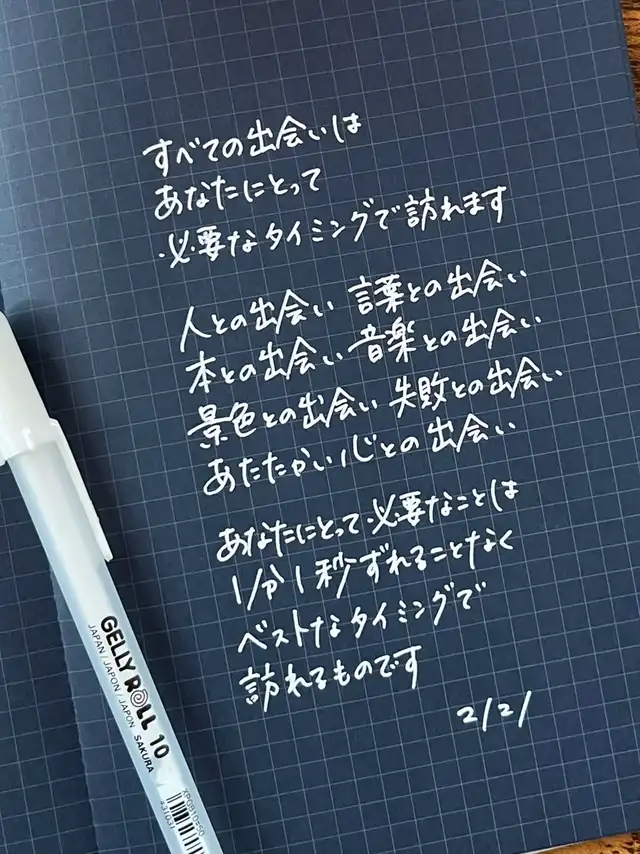 すべての出会いは
あなたにとって
必要なタイミングで訪れます
人との出会い 言葉との出会い
本との出会い 音楽との出会い
景色との出会い 失敗との出会い
あたたかい心との出会い
あなたにとって必要なことは
1分1秒ずれることなく
ベストなタイミングで
訪れるものです
2/21
GELLY ROLL 10
JAPAN / JAPON / JAPON SAKURA
XPGB10#50